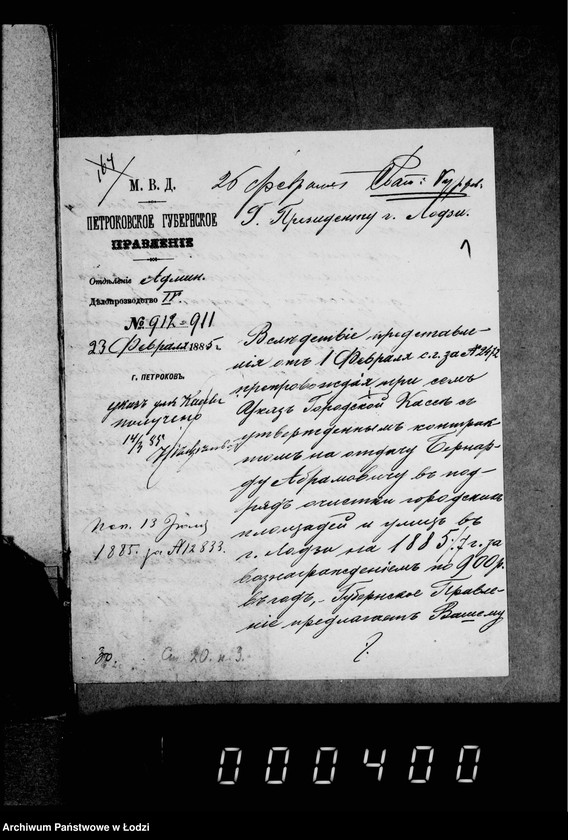 164
М. В. Д.
ПЕТРОКОВСКОЕ ГУБЕРНСКОЕ
ПРАВЛЕНІЕ
Отдѣленіе Админ.
Дѣлопроизводство II
№ 912-911
23 Февраля 1885 г.
Г. ПЕТРОКОВЪ.
указъ
получено
14/3 85
13 Іюня
1885. за № 12833.
26 февраля
Г. Президенту г. Лодзи.
Вслѣдствіе представле-
нія отъ 1 Февраля с. г. за № 2472
препровождая при семъ
Указъ Городской Кассѣ съ
утвержденнымъ контрак-
томъ на отдачу Бернар-
ду Абрамовичу въ под-
рядъ очистки городскихъ
площадей и улицъ въ
г. Лодзи на 1885/7 г. за
вознагражденіемъ по 900 р.
въ годъ, Губернское Правле-
ніе предлагаетъ Вашему
Ст. 20. п. 3.
000400
Archiwum Państwowe w Łodzi